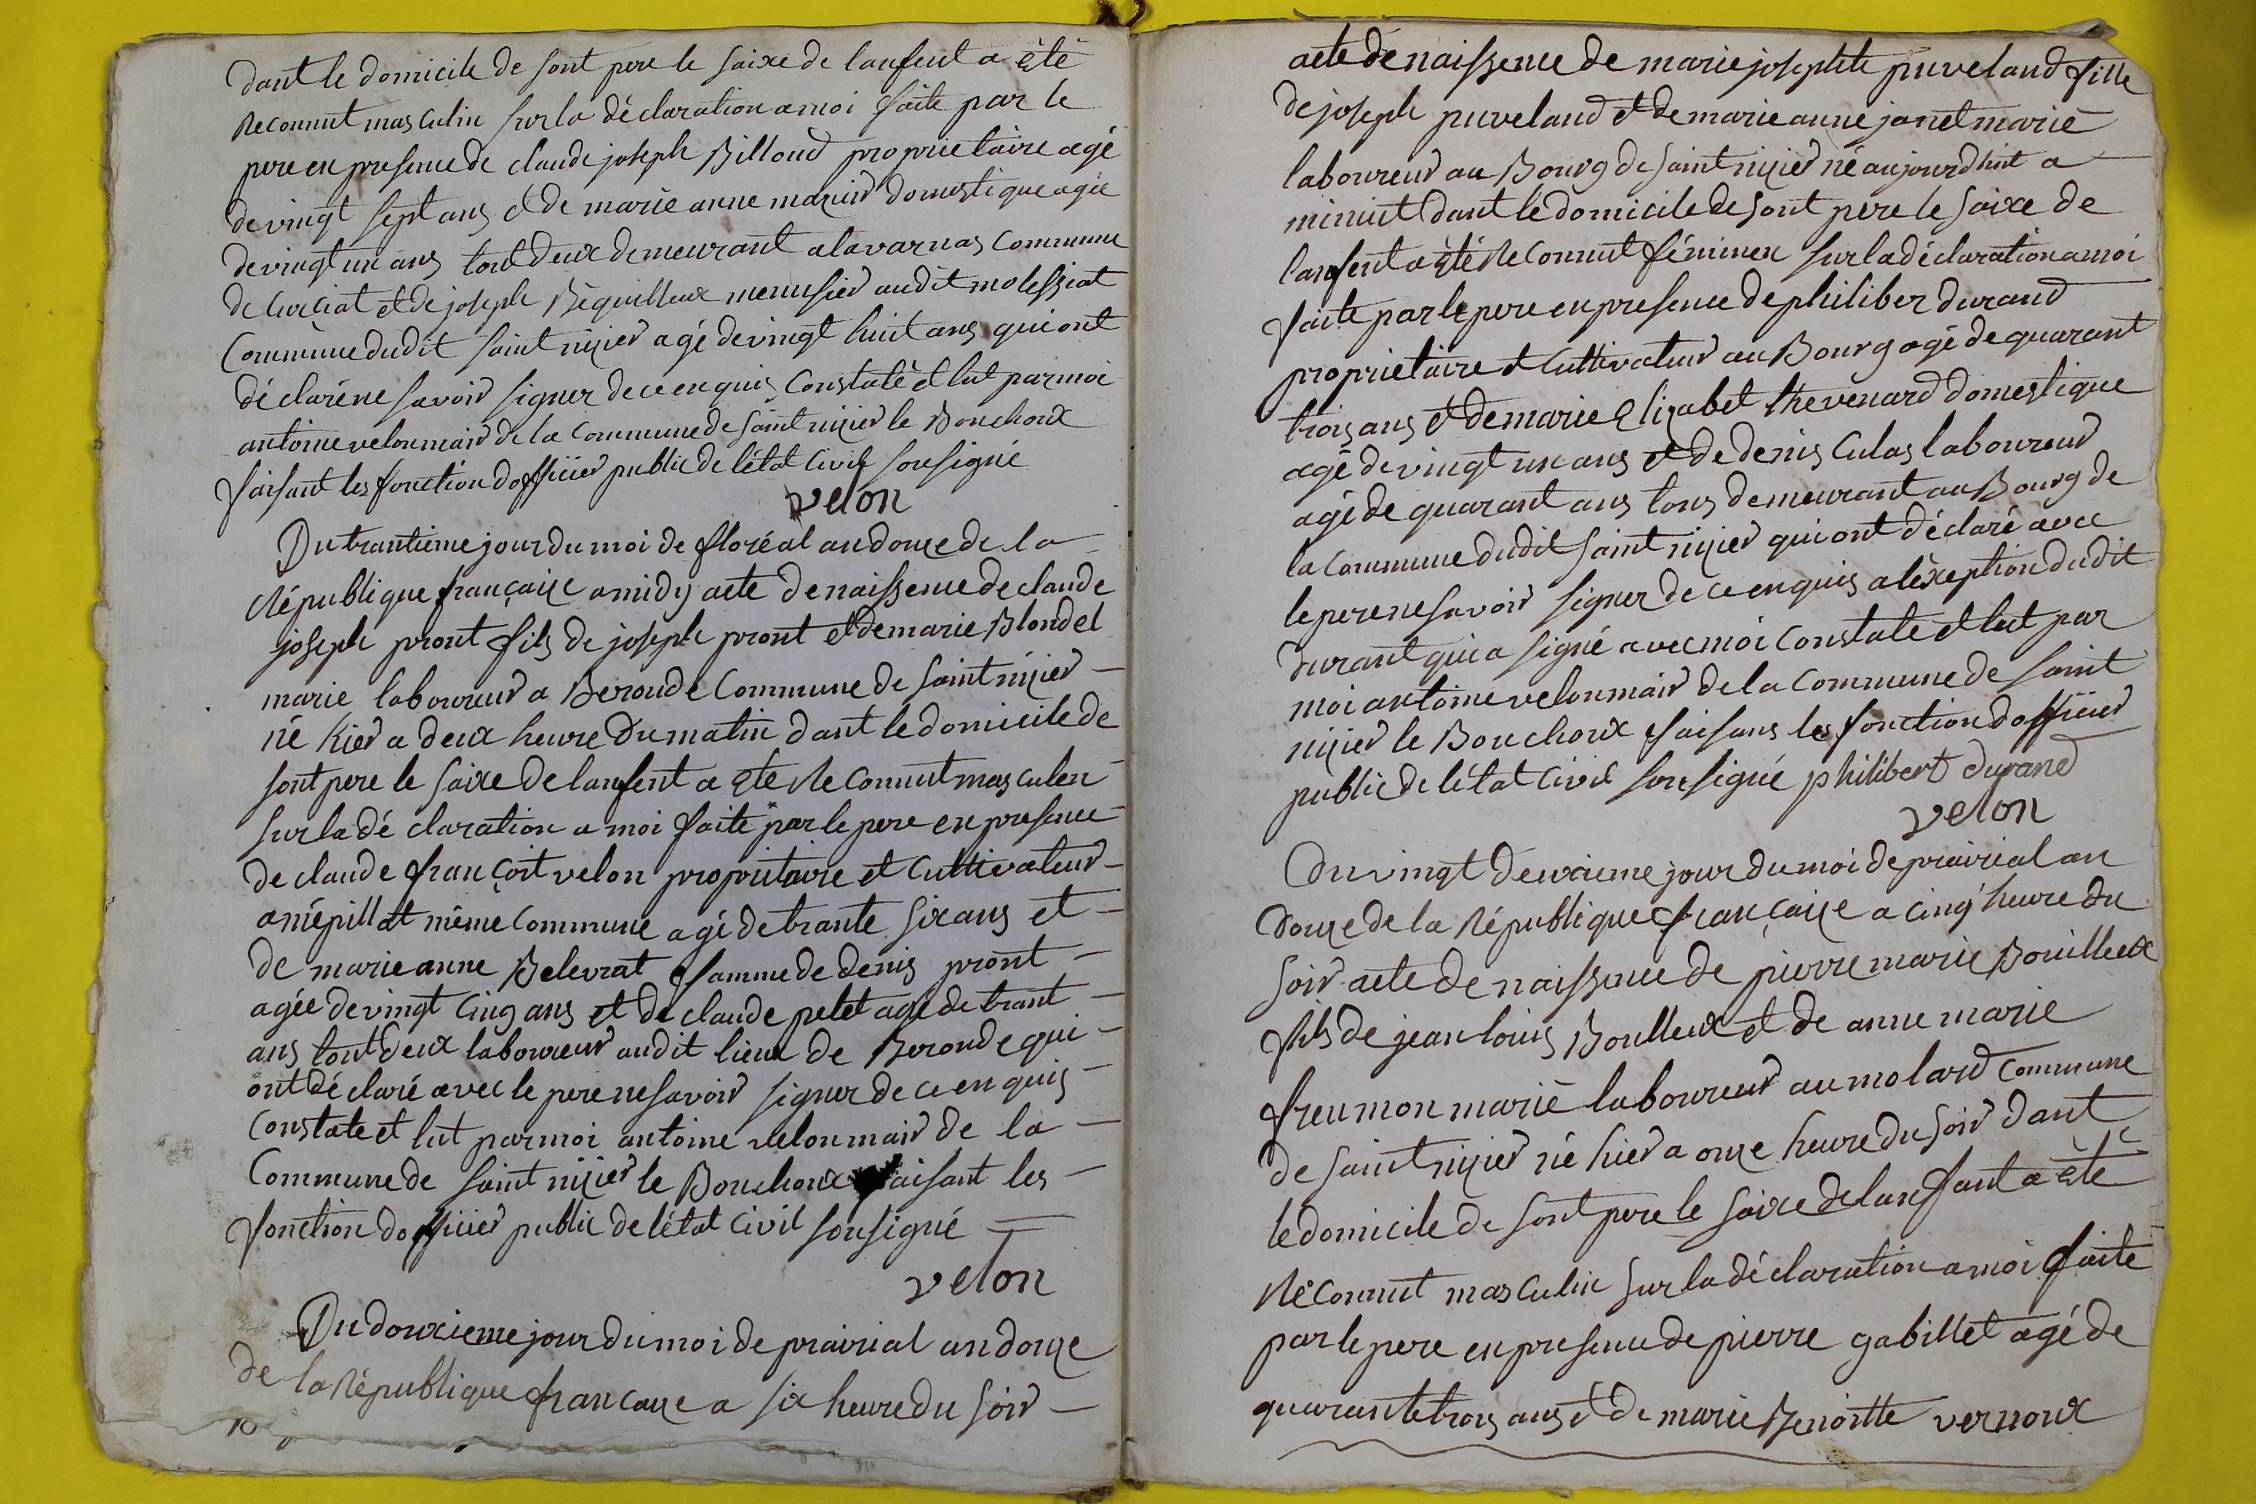 dant le domicile de sont pere le saixe de lanfent a èté
Reconnut masculin sur la déclaration a moi faite par le
pere en presence de claude joseph Billoud proprietaire agé
de vingt sept ans et de marie anne mazuir domestique agée
de vingt un ans tout deux demeurant a lavarnas Commune
de Curciat et de joseph Béquilleux menusier audit molessiat
Commune dudit saint nizier agé de vingt huit ans qui ont
déclaré ne savoir signer de ce enquis Constaté et lut par moi
antoine velon mair de la Commune de saint nizier le Bouchoux
faisant les fonction dofficier public de létat Civil sousigné
velon
Du trantieme jour du moi de floréal an douze de la
République françaize a midy acte de naissence de claude
joseph pront fils de joseph pront et de marie Blondel
marie laboureur a Beroude Commune de saint nizier
né hier a deux heure du matin dant le domicile de
sont pere le saixe de lanfent a èté Reconnut masculen
sur la déclaration a moi faite par le pere en presence
de claude françoit velon propritaire et Cultivateur
a mépillat même Commune agé de trante six ans et
de marie anne Belevrat famme de denis pront
agée de vingt Cinq ans et de claude petet agé de trant
ans tout deux laboureur audit lieux de Beronde qui
ont déclaré avec le pere ne savoir signer de ce enquis
Constate et lut par moi antoine velon mair de la
Commune de saint nizier le Bouchoux faisant les
fonction dofficier public de létat Civil sousigné
velon
Du douxieme jour du moi de prairial an douze
de la République francaize a six heure du soir
10
acte de naissence de marie josephte puveland fille
de joseph puveland et de marie anne janet marié
laboureur au Bourg de saint nizier né aujourdhiut a
minuit dant le domicile de sont pere le saixe de
lanfent a èté Reconnut féminen sur la déclaration a moi
faite par le pere en presence de philiber durand
proprietaire et Cultivateur au Bourg agé de quarant
trois ans et de marie Elizabet thevenard domestique
agé de vingt un ans et de denis Culas laboureur
agé de quarant ans tous demeurant au Bourg de
la Commune dudit saint nizier qui ont déclaré avec
le pere ne savoir signer de ce enquis a léxeption dudit
durant qui a signé avec moi Constate et lut par
moi antoine velon mair de la Commune de saint
nizier le Bouchoux faisans les fonction dofficier
public de létat Civil sousigné philibert durand
velon
Du vingt deuxieme jour du moi de prairial an
douze de la République françaize a cinq heure du
soir acte de naissence de pierre marie Bouilleux
fils de jean louis Boulleux et de anne marie
freumon marié laboureur au molard Commune
de saint nizier né hier a onze heure du soir dant
le domicile de sont pere le saixe de lanfant a èté
Réconnut masculin sur la déclaration a moi faite
par le pere en presence de pierre gabillet agé de
quarante trois ans et de marie Benoitte vernoux